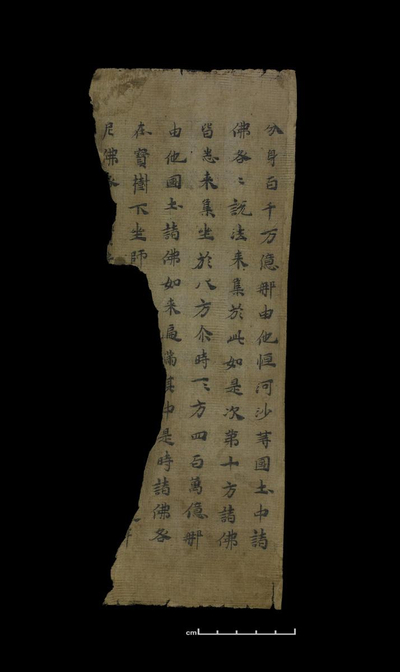 分身百千万億那由他恒河沙等國土中諸
佛各〻說法来集於此如是次第十方諸佛
皆悉来集坐於八方尒時一一方四百萬億那
由他國土諸佛如来遍滿其中是時諸佛各
在寶樹下坐師
尼佛各
cm